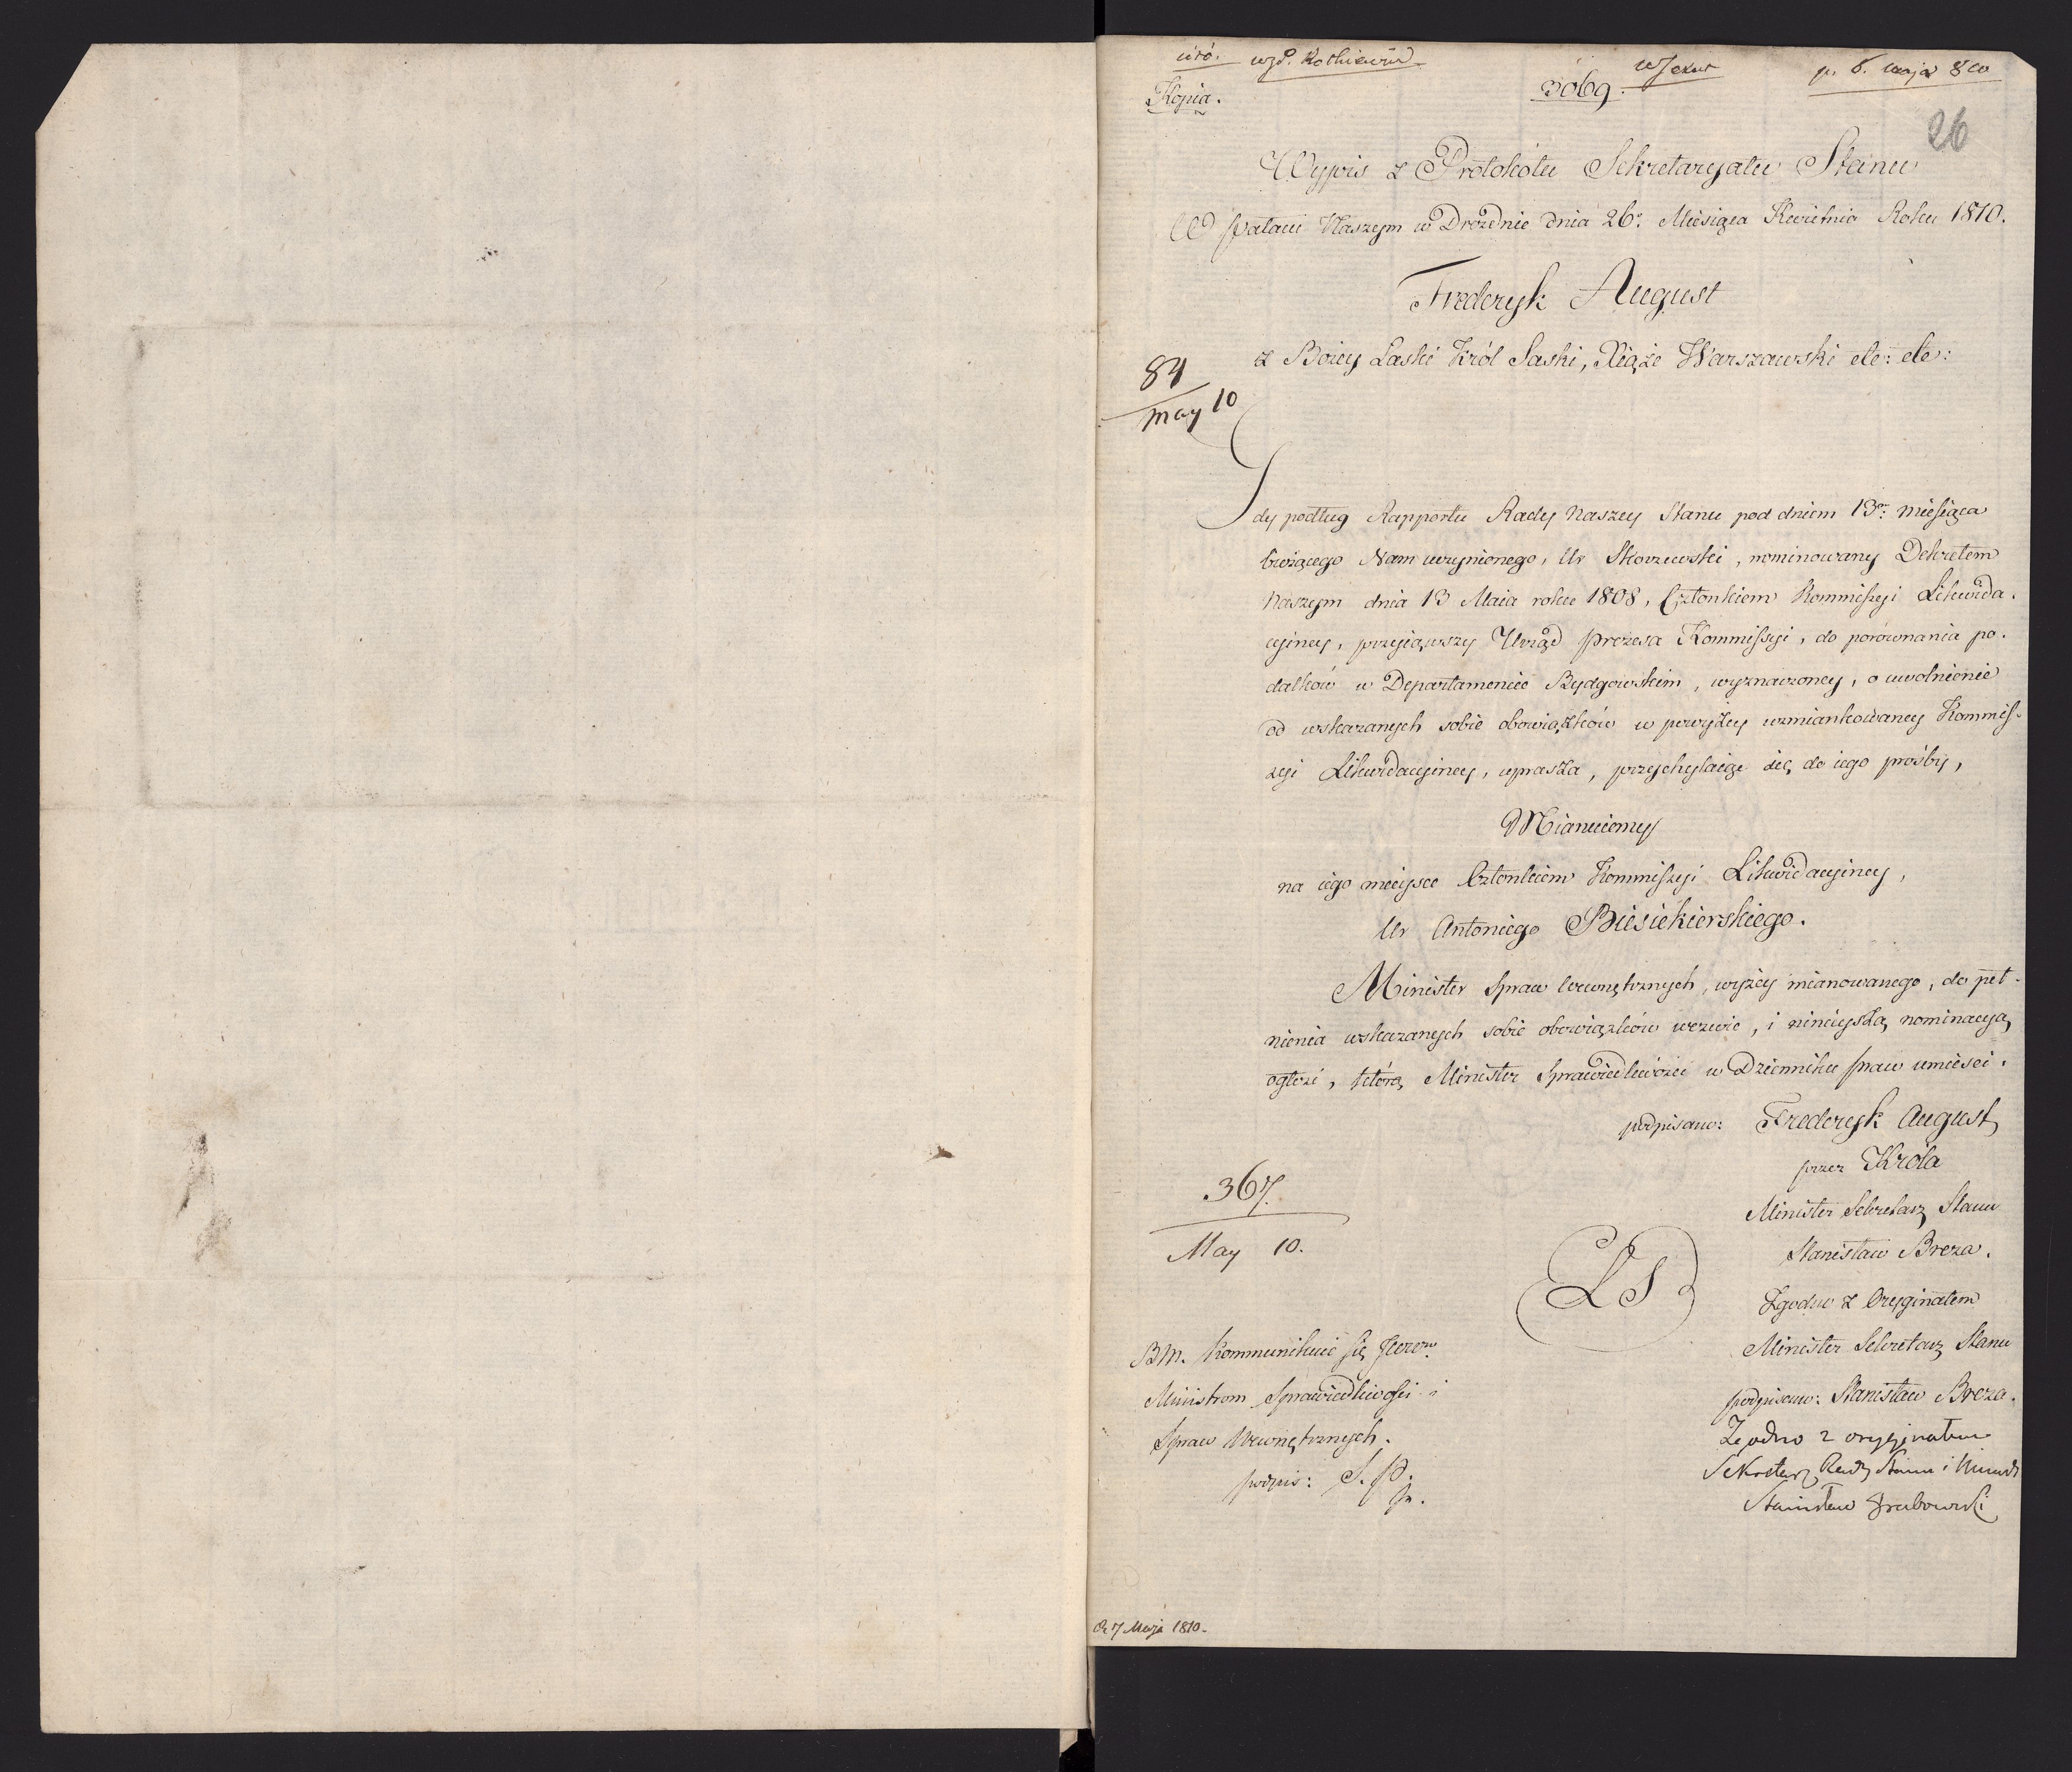 wzd. Rothiewicz
p. 6. maja 810
Kopia.
3069.
26
Wypis z Protokołu Sekretaryatu Stanu
W pałacu Naszym w Dreźnie dnia 26. Miesiąca Kwietnia Roku 1810.
Frederyk August
z Bożey Łaski Król Saski, Xiąże Warszawski etc: etc:
84
may 10
Gdy podług Rapportu Rady Naszey Stanu pod dniem 13m: miesiąca
bieżącego Nam uczynionego, Ur Skorzewski, nominowany Dekretem
Naszym dnia 13 Maia roku 1808, Członkiem Kommissyi Likwida-
cyiney, przyiąwszy Urząd Prezesa Kommissyi, do porównania po-
datków w Departamencie Bydgowskim, wyznaczoney, o uwolnienie
od wskazanych sobie obowiązków w powyżey wzmiankowaney Kommis-
syi Likwidacyiney, uprasza, przychylaiąc się do iego prośby,
Mianuiemy
na iego mieysce Członkiem Kommissyi Likwidacyiney,
Ur Antoniego Biesiekierskiego.
Minister Spraw Wewnętrznych, wyżey mianowanego, do peł-
nienia wskazanych sobie obowiązków wezwie, i ninieyszą nominacyą
ogłosi, którą Minister Sprawiedliwości w Dzienniku praw umieści.
podpisano: Frederyk August
przez Króla
Minister Sekretarz Stanu
Stanisław Breza.
367.
May 10.
L S
Zgodno z Oryginałem
Minister Sekretarz Stanu
podpisano: Stanisław Breza.
BM. Kommunikuie się
Ministrom Sprawiedliwości i
Spraw Wewnętrznych.
podpis: S. P.
Zgodno z oryginałem
Sekretarz Rady Stanu i Minist
Stanisław Grabowski
d. 7 Maja 1810.